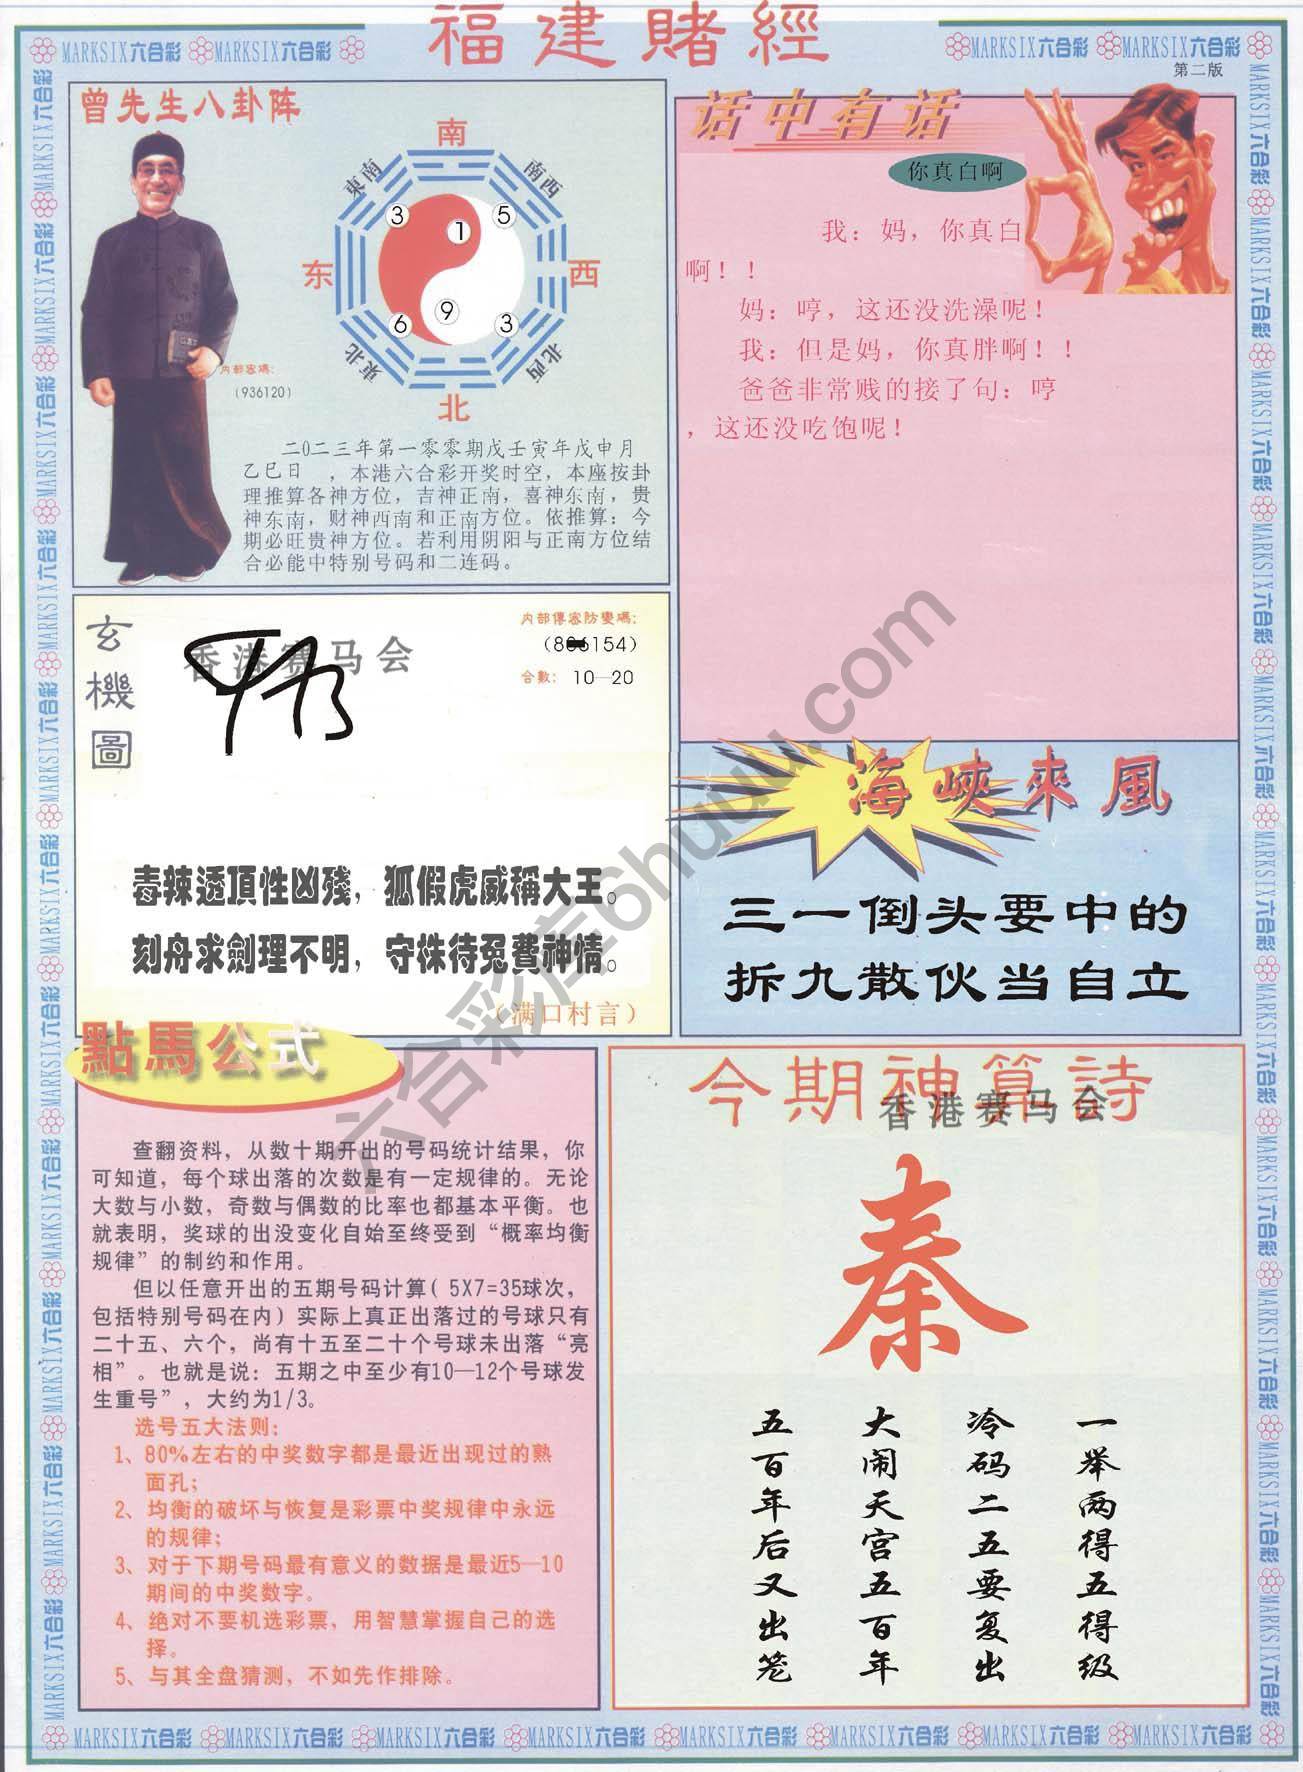 福建賭經
MARKSIX六合彩 MARKSIX六合彩
MARKSIX六合彩 MARKSIX六合彩
第二版
曾先生八卦阵
南
東南
南西
3
1
5
东
西
6
9
3
東北
北西
北
内部密碼:
(936120)
二0二三年第一零零期戊壬寅年戊申月
乙巳日 ,本港六合彩开奖时空,本座按卦
理推算各神方位,吉神正南,喜神东南,贵
神东南,财神西南和正南方位。依推算:今
期必旺贵神方位。若利用阴阳与正南方位结
合必能中特别号码和二连码。
话中有话
你真白啊
我:妈,你真白
啊!!
妈:哼,这还没洗澡呢!
我:但是妈,你真胖啊!!
爸爸非常贱的接了句:哼
,这还没吃饱呢!
玄機圖
香港赛马会
内部傳密防變碼:
合數: 10—20
毒辣透頂性凶殘,狐假虎威稱大王。
刻舟求劍理不明,守株待兔費神情。
(满口村言)
海峽來風
三一倒头要中的
拆九散伙当自立
點馬公式
查翻资料,从数十期开出的号码统计结果,你
可知道,每个球出落的次数是有一定规律的。无论
大数与小数,奇数与偶数的比率也都基本平衡。也
就表明,奖球的出没变化自始至终受到“概率均衡
规律”的制约和作用。
但以任意开出的五期号码计算(5X7=35球次,
包括特别号码在内)实际上真正出落过的号球只有
二十五、六个,尚有十五至二十个号球未出落“亮
相”。也就是说:五期之中至少有10—12个号球发
生重号”,大约为1/3。
选号五大法则:
1、80%左右的中奖数字都是最近出现过的熟
面孔;
2、均衡的破坏与恢复是彩票中奖规律中永远
的规律;
3、对于下期号码最有意义的数据是最近5—10
期间的中奖数字。
4、绝对不要机选彩票,用智慧掌握自己的选
择。
5、与其全盘猜测,不如先作排除。
今期神算詩
香港赛马会
秦
一举两得五得级
冷码二五要复出
大闹天宫五百年
五百年后又出笼
六合彩库6huuu.com
MARKSIX六合彩 MARKSIX六合彩 MARKSIX六合彩 MARKSIX六合彩 MARKSIX六合彩 MARKSIX六合彩 MARKSIX六合彩 MARKSIX六合彩